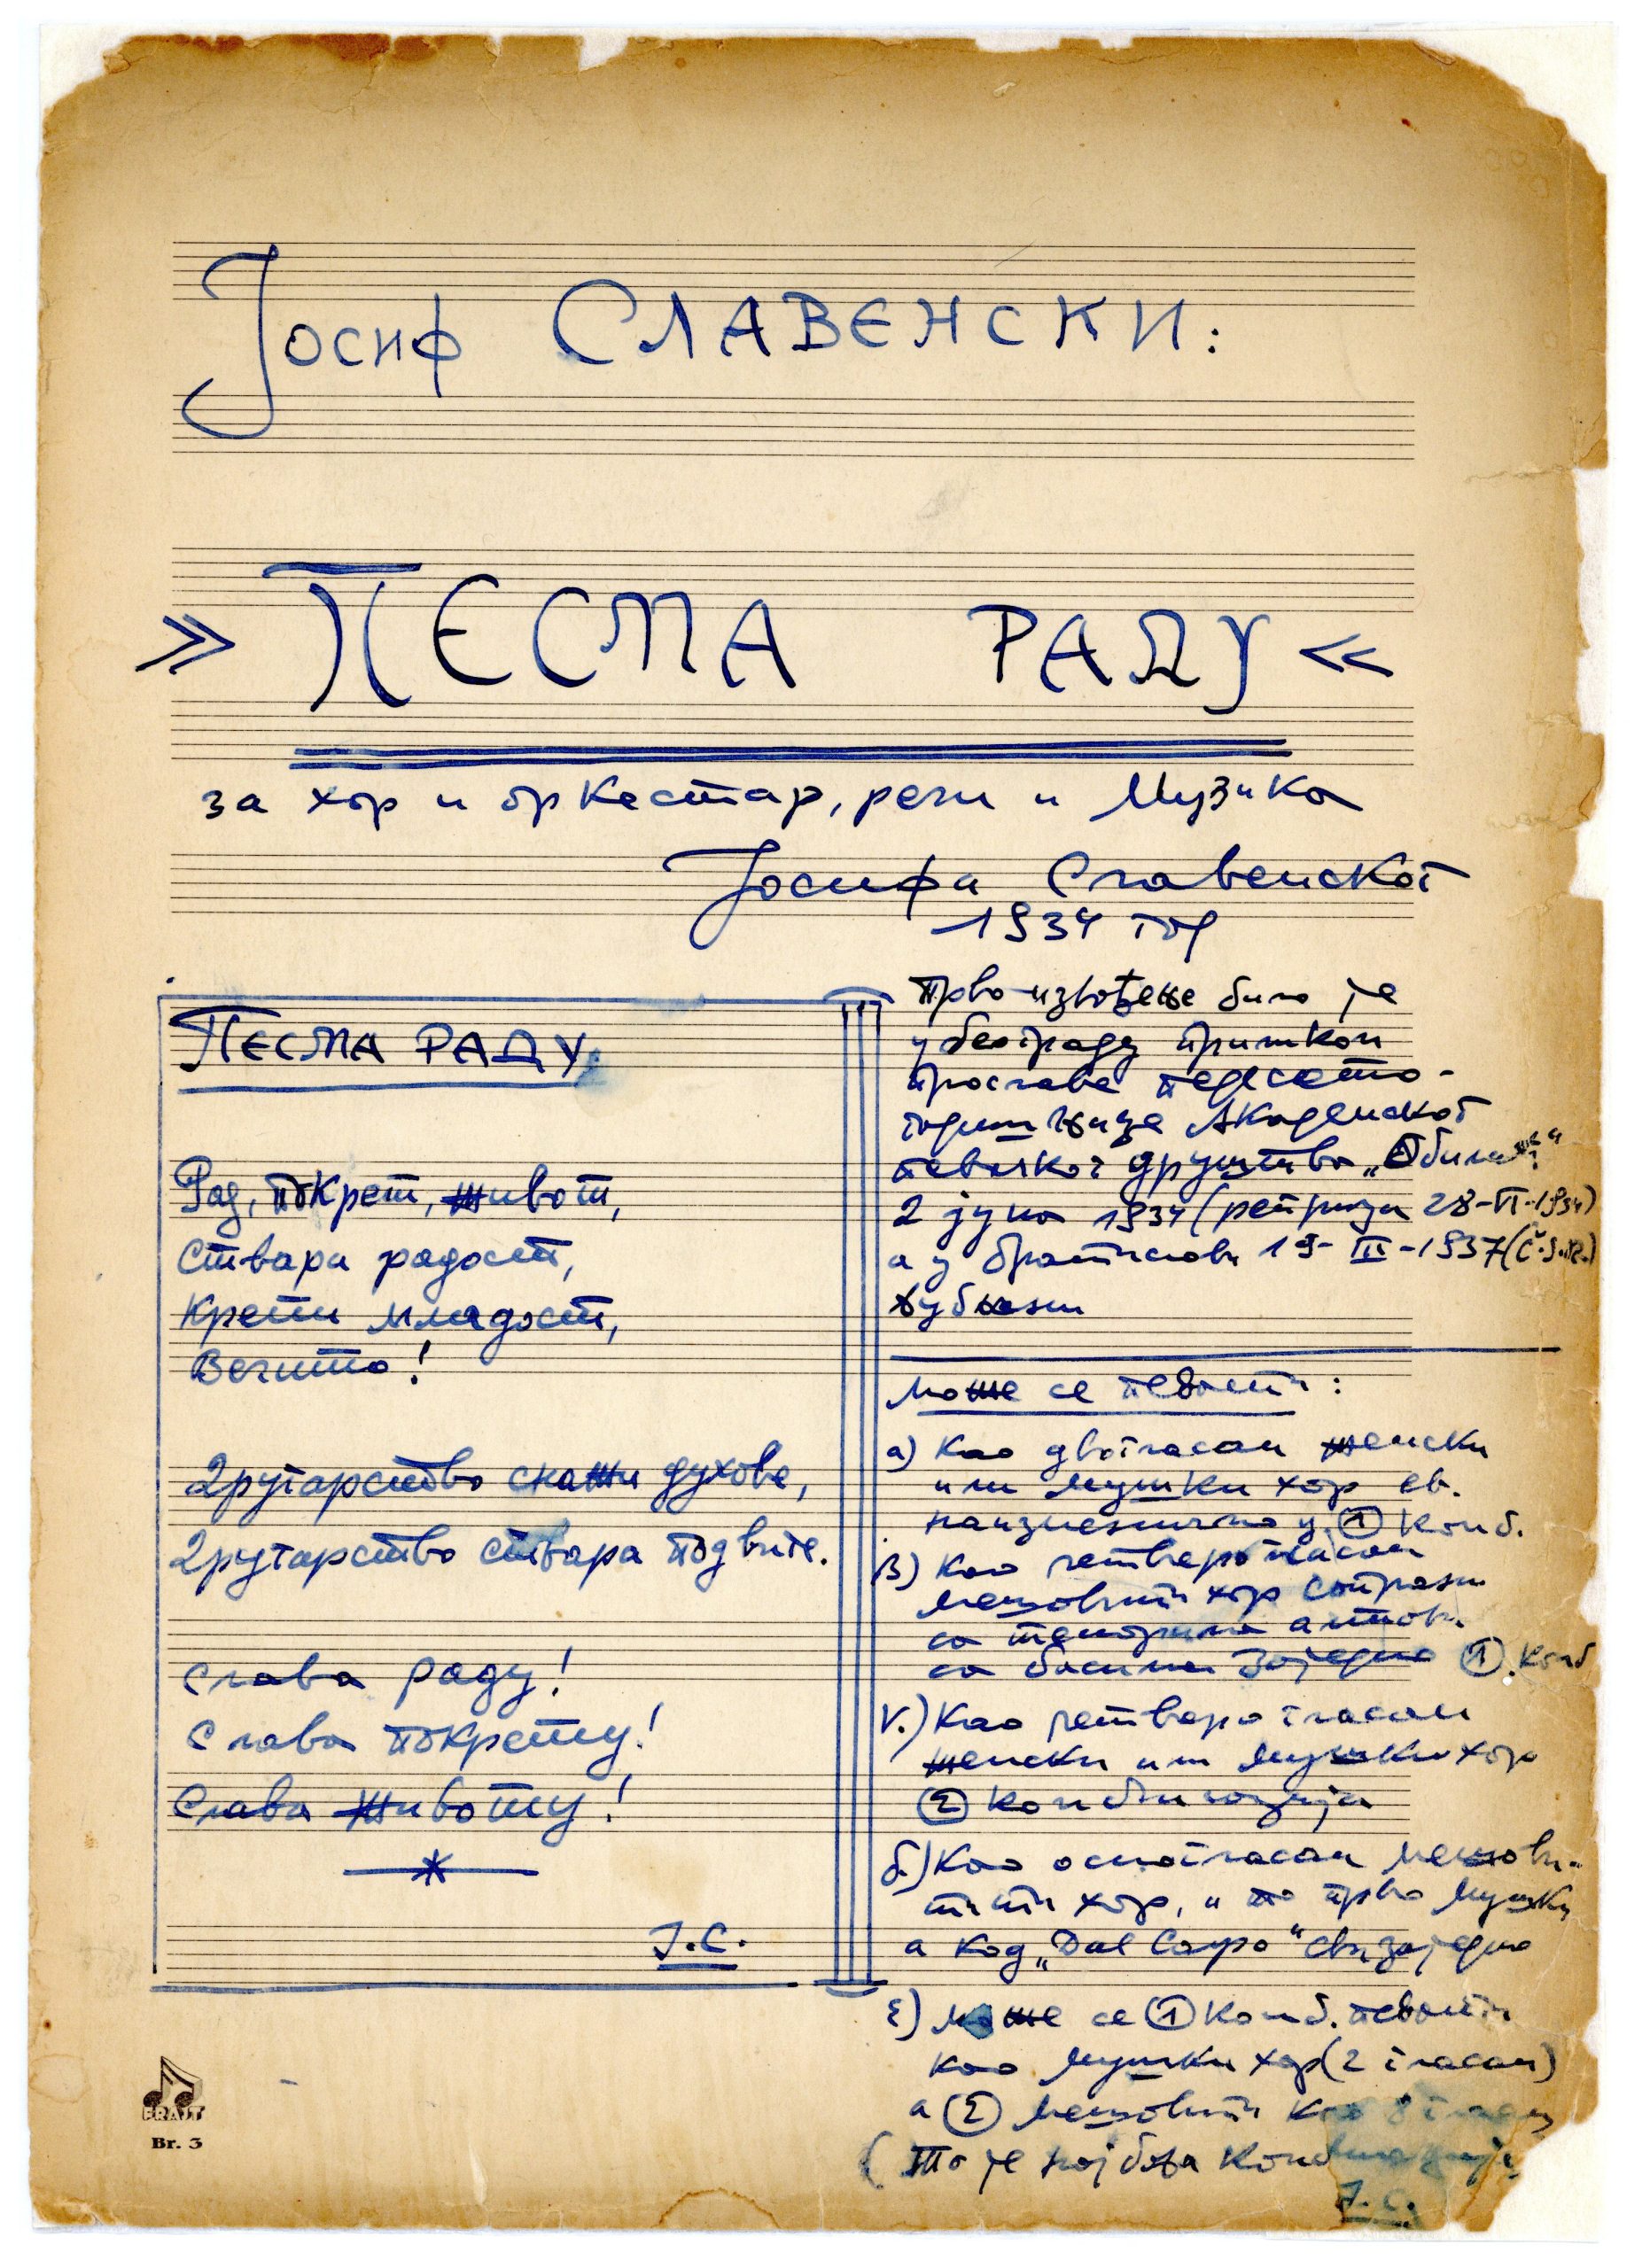 Јосиф СЛАВЕНСКИ:
» ПЕСМА РАДУ «
за хор и оркестар, речи и музика
Јосифа Славенског
1934 год
ПЕСМА РАДУ
Рад, покрет, живот,
Ствара радост,
Крепи младост,
Вечито!
Другарство снажи духове,
Другарство ствара подвиге.
Слава раду!
Слава покрету!
Слава животу!
Ј.С.
Прво извођење било је
у Београду приликом
прославе педесето-
годишњице Академског
певачког друштва „Обилић“
2 јуна 1934 (реприза 28-VI-1934)
а у Братислави 19-III-1937 (Č.S.R.)
може се певати:
а) Као двогласан женски
или мушки хор ев.
наизменично у ① комб.
в) Као четверогласан
мешовити хор сопрани
са тенорима алтови
са басима заједно ①. комб
V.) Као четверогласан
женски или мушки хор
② комбинација
б.) Као осмогласан мешови-
тити хор, и то прво мушки
а код „Dal Capo“ сви заједно
ε) може се ① комб. певати
као мушки хор (2 гласан)
а ② мешовити као 8 гласан
(то је најбоља комбинација
Ј.С.
ERAJT
Br. 3